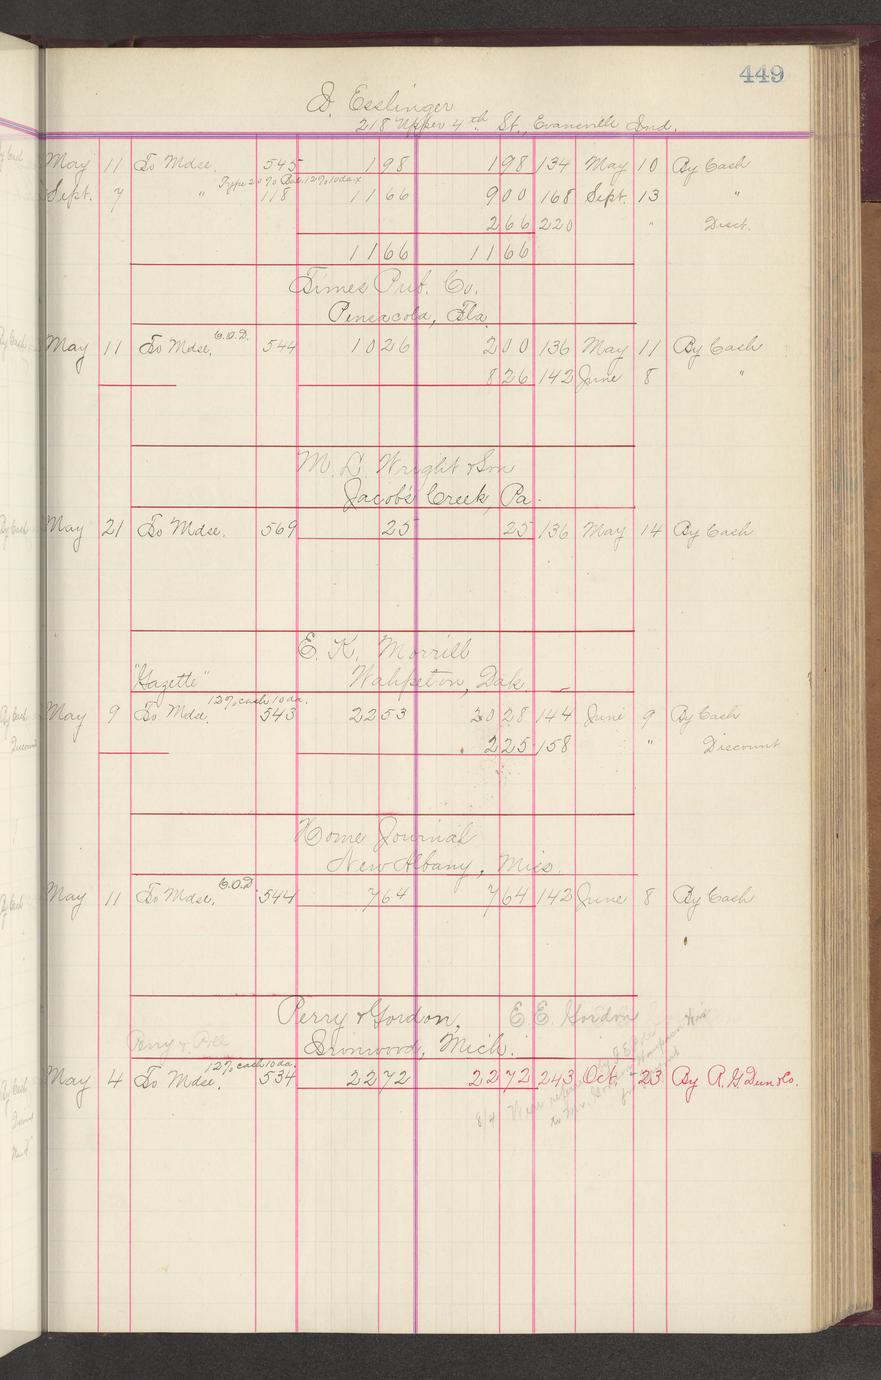 449
D. Esslinger
218 Upper 4th St., Evansville Ind.
May 11 To Mdse. 545 198 198 134 May 10 By Cash
Type 20% Bal. 12% 10 da.
Sept. 7 " 118 1166 900 168 Sept. 13 "
266 220 " Disct.
1166 1166
Times Pub. Co.
Pensacola, Fla.
May 11 To Mdse. C.O.D. 544 1026 200 136 May 11 By Cash
826 142 June 8 "
M. L. Wright & Son
Jacob's Creek, Pa.
May 21 To Mdse. 569 25 25 136 May 14 By Cash
E. K. Morrill
"Gazette" Wahpeton, Dak.
12% cash 10 da.
May 9 To Mdse. 543 2253 2028 144 June 9 By Cash
225 158 " Discount
Home Journal
New Albany, Miss.
May 11 To Mdse. C.O.D. 544 764 764 142 June 8 By Cash
Perry & Gordon, E. E. Gordon
Perry &
Ironwood, Mich.
12% cash 10 da.
May 4 To Mdse. 534 2272 2272 243 Oct. 23 By R. G. Dun & Co.
8/4 Were